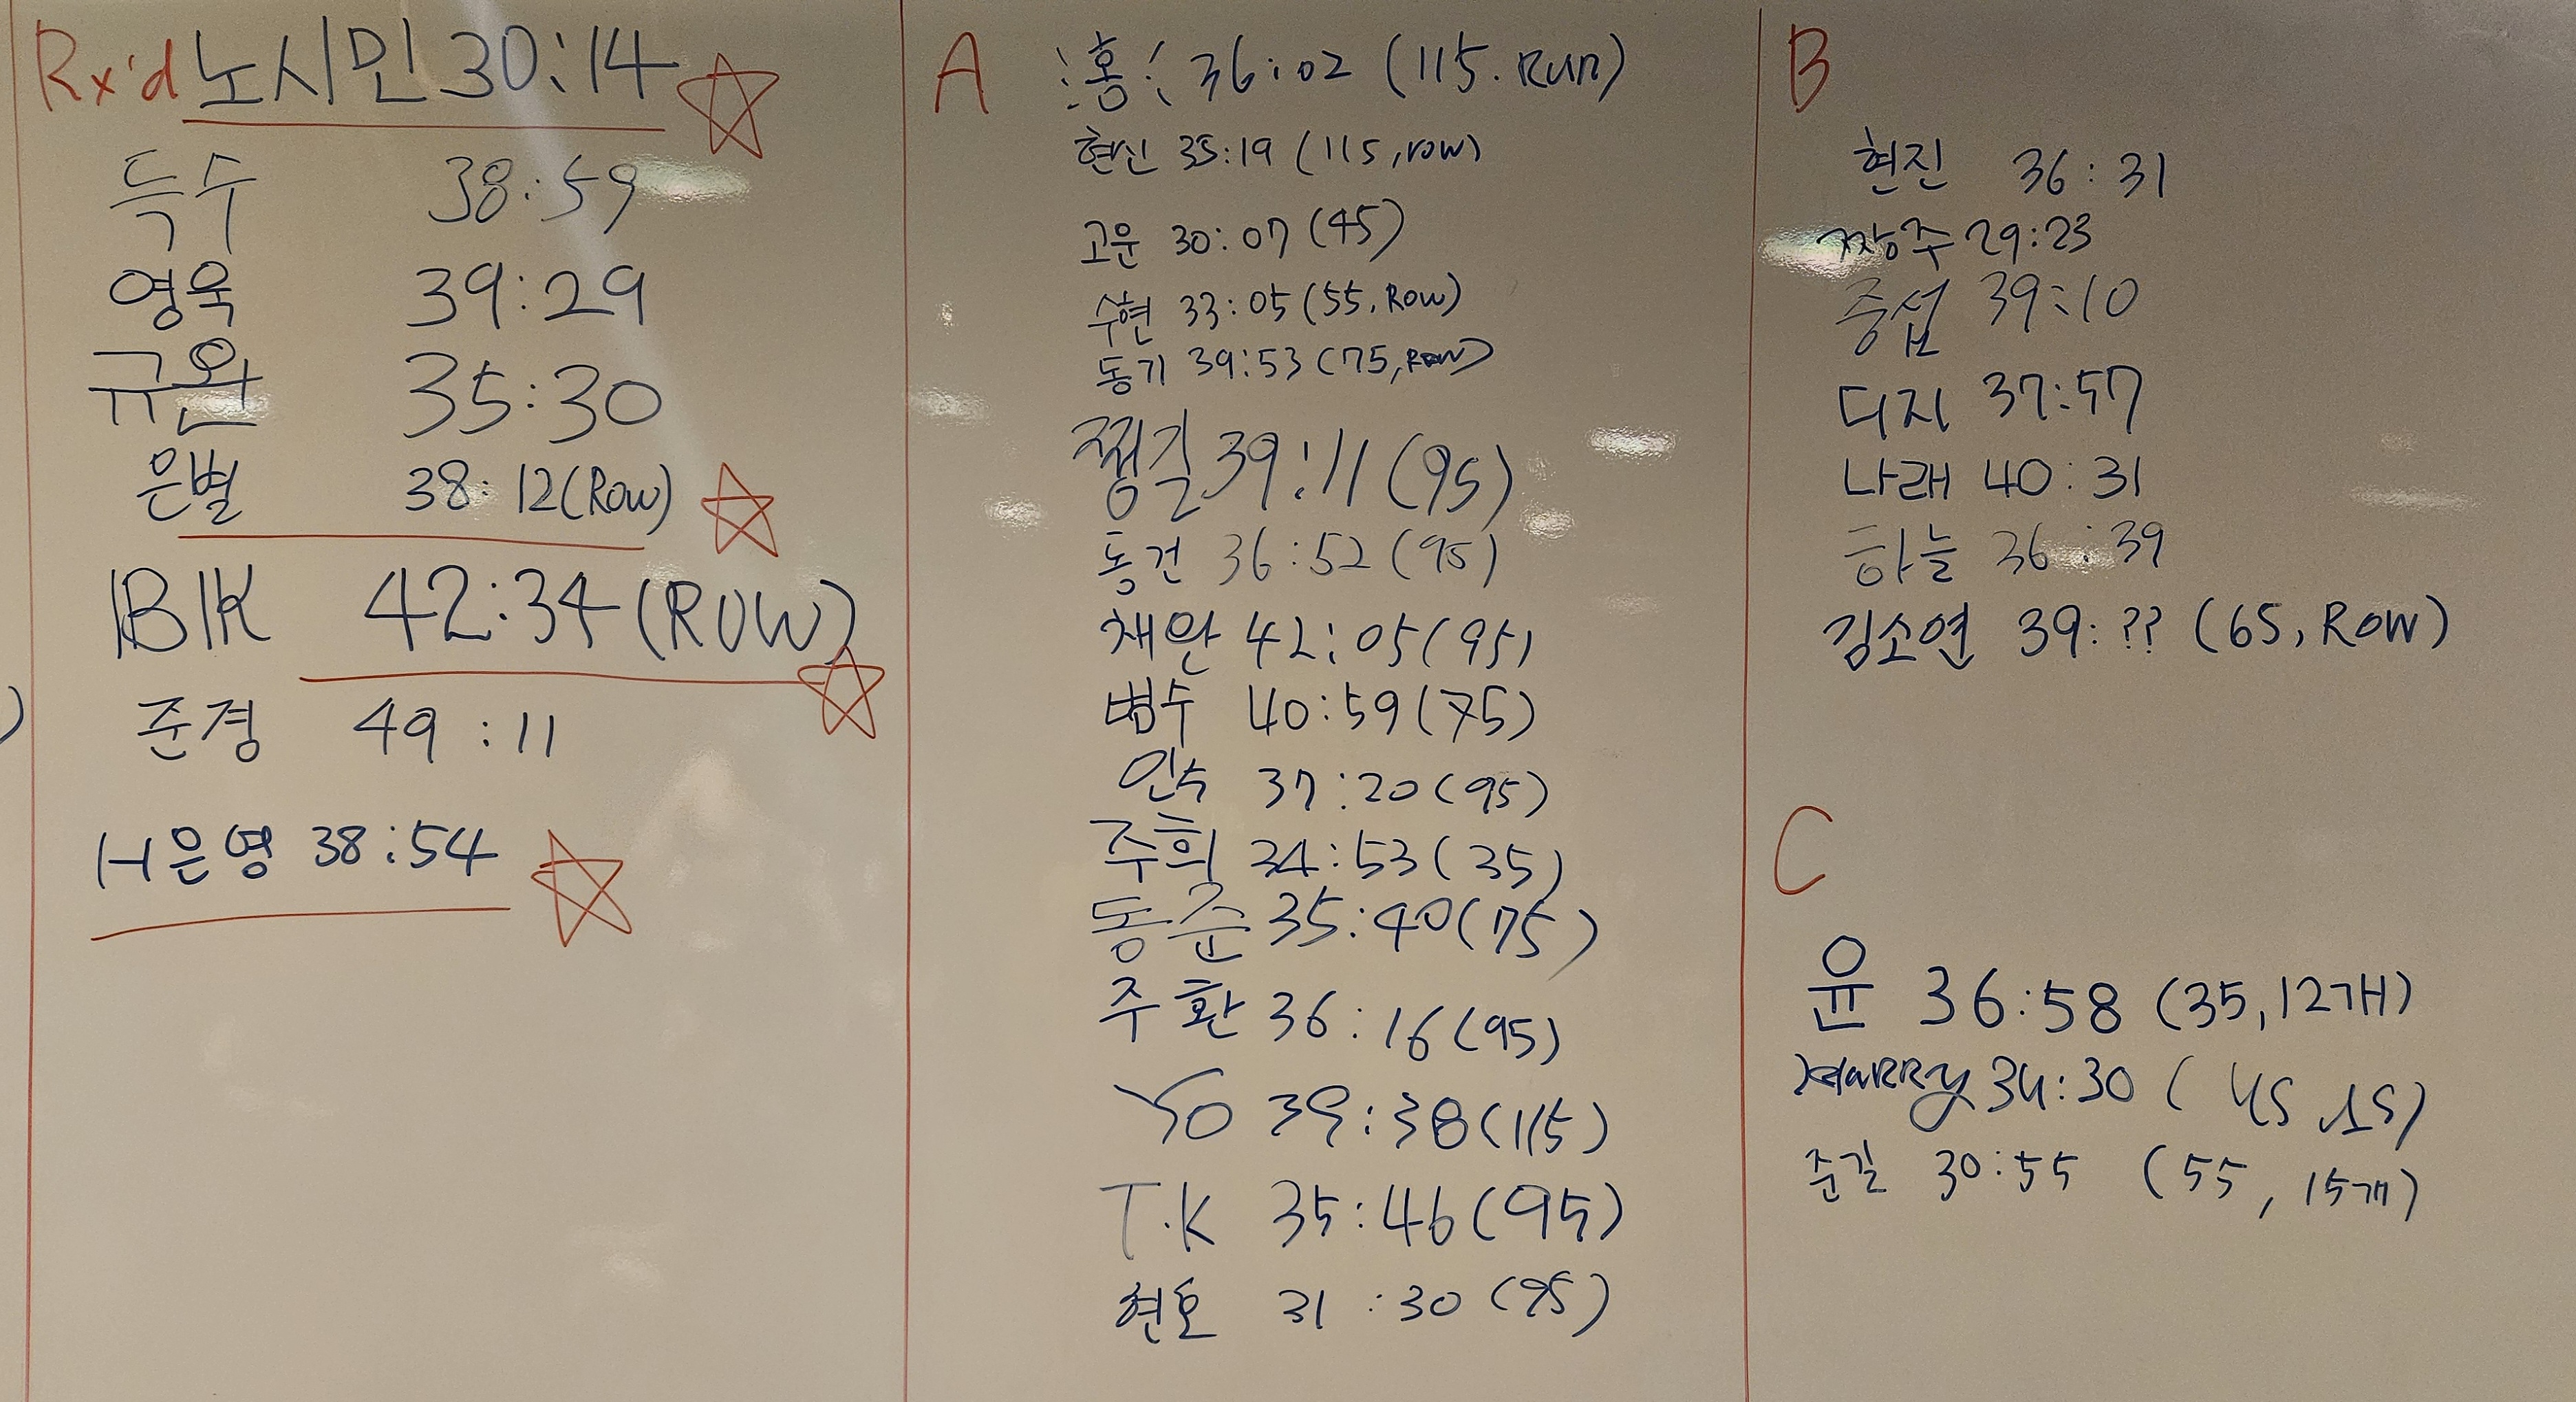 Rx'd 노시민 30:14
득수 38:59
영욱 39:29
규완 35:30
은별 38:12(Row)
BK 42:34(ROW)
준경 49:11
H은영 38:54
A
홍 36:02 (115. RUN)
현신 35:19 (115, row)
고운 30:07 (45)
수현 33:05 (55, Row)
동기 39:53 (75, ROW)
쩡길 39:11 (95)
동건 36:52 (95)
채완 42:05 (95)
범수 40:59 (75)
인수 37:20 (95)
주희 34:53 (35)
동준 35:40 (75)
주환 36:16 (95)
YO 39:38 (115)
T.K 35:46 (95)
현호 31:30 (95)
B
현진 36:31
짱주 29:23
중섭 39:10
디지 37:57
나래 40:31
하늘 36:39
김소연 39:?? (65, ROW)
C
윤 36:58 (35, 12개)
HaRRy 34:30 (45
준길 30:55 (55, 15개)